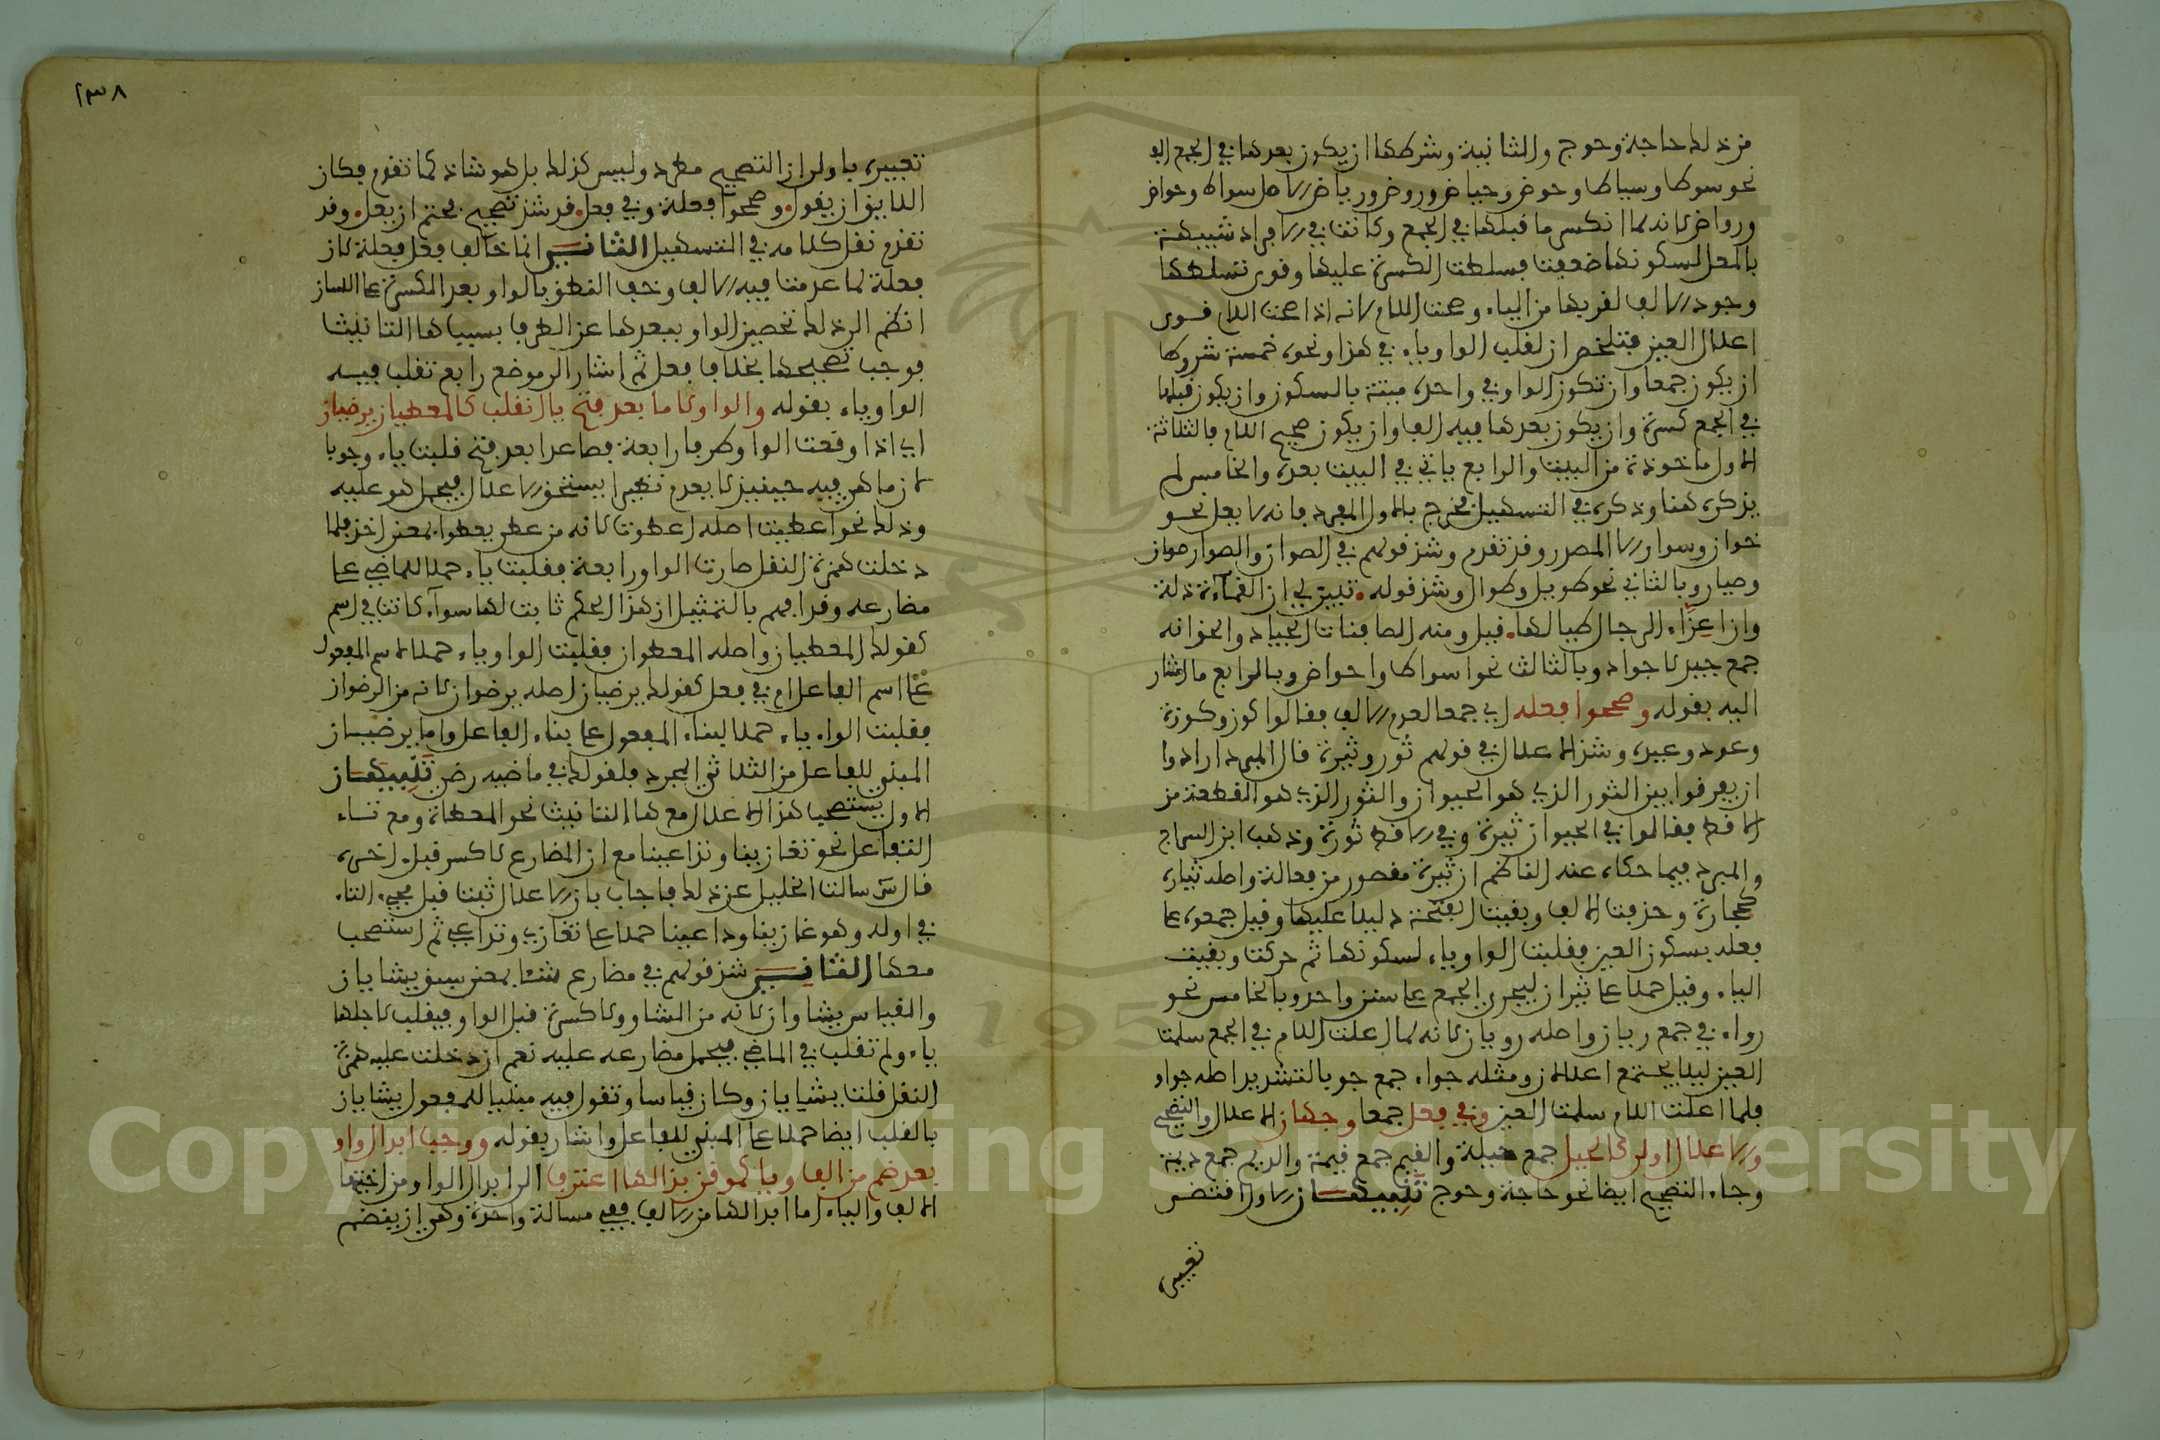 من ذلك حاجة وحوج والثانية وشرطها ان يكون بعدها في الجمع الف
نحو سوط وسياط وحوض وحياض وروض ورياض الاصل سواط وحواض
ورواض لكنه لما انكسر ما قبلها في الجمع وكانت في الافراد شبيهة
بالمعل لسكونها ضعفت فسلطت الكسرة عليها وقوى تسلطها
وجود الالف لقربها من الياء وصحت اللام لانه اذا صحت اللام قوى
اعلال العين فتلخص ان لقلب الواو ياء في هذا ونحوه خمسة شروط
ان يكون جمعا وان تكون الواو في واحده ميتة بالسكون وان يكون قبلها
في الجمع كسرة وان يكون بعدها فيه الف وان يكون صحيح اللام فالثلاثة
الاول ماخوذة من البيت والرابع ياتي في البيت بعده والخامس لم
يذكره هنا وذكره في التسهيل فخرج بالاول المفرد فانه لا يعل نحو
خوان وسوار الا المصدر وقد تقدم وشذ قولهم في الصوان والصوار صيان
وصيار وبالثاني نحو طويل وطوال وشذ قوله تبين لي ان القماءة ذلة
وان اعزاء الرجال طيالها قيل ومنه الصافنات الجياد والحق انه
جمع جيد لا جواد وبالثالث نحو اسواط واحواض وبالرابع ما اشار
اليه بقوله وصححوا فعله اي جمعا لعدم الالف فقالوا كوز وكوزة
وعود وعودة وشذ الاعلال في قولهم ثور وثيرة قال المبرد ارادوا
ان يفرقوا بين الثور الذي هو الحيوان والثور الذي هو القطعة من
الاقط فقالوا في الحيوان ثيرة وفي الاقط ثورة وذهب ابن السراج
والمبرد فيما حكاه عنه الناظم ان ثيرة مقصور من فعالة واصله ثيارة
كحجارة وحذفت الالف وبقيت الفتحة دليلا عليها وقيل جمعوه على
فعلة بسكون العين فقلبت الواو ياء لسكونها ثم حركت وبقيت
الياء وقيل حملا على ثيران ليجري الجمع على سنن واحد وبالخامس نحو
رواء في جمع ريان واصله رويان لانه لما اعلت اللام في الجمع سلمت
العين ليلا يجتمع اعلالان ومثله جواء جمع جو بالتشديد اصله جواو
فلما اعلت اللام سلمت العين وفي فعل جمعا وجهان الاعلال والتصحيح
والاعلال اولى كالحيل جمع حيلة والقيم جمع قيمة والديم جمع ديمة
وجاء التصحيح ايضا نحو حاجة وحوج تنبيهان الاول اقتضى
تعبيره
١٣٨
تعبيره باولى ان التصحيح مطرد وليس كذلك بل هو شاذ كما تقدم فكان
اللايق ان يقول وصححوا فعلة وفي فعل قد شذ تصحيح فحتم ان يعل وقد
تقدم نقل كلامه في التسهيل الثاني انما خالف فعل فعلة لان
فعلة لما عدمت فيه الالف وخف النطق بالواو بعد الكسرة على اللسان
انضم الى ذلك تحصين الواو ببعدها عن الطرف بسبب هاء التانيث
فوجب تصحيحها بخلاف فعل ثم اشار الى موضع رابع تقلب فيه
الواو ياء بقوله والواو لاما بعد فتح يا انقلب كالمعطيان يرضيان
اي اذا وقعت الواو طرفا رابعة فصاعدا بعد فتح قلبت ياء وجوبا
لان ما هي فيه حينئذ لا يعدم نظيرا يستحق الاعلال فيحمل هو عليه
وذلك نحو اعطيت اصله اعطوت لانه من عطى يعطوا بمعنى اخذ فلما
دخلت همزة النقل صارت الواو رابعة فقلبت ياء حملا للماضي على
مضارعه وقد افهم بالتمثيل ان هذا الحكم ثابت لها سوآء كانت في اسم
كقولك المعطيان واصله المعطوان فقلبت الواو ياء حملا لاسم المفعول
على اسم الفاعل ام في فعل كقولك يرضيان اصله يرضوان لانه من الرضوان
فقلبت الواو ياء حملا لبناء المفعول على بناء الفاعل واما يرضيان
المبني للفاعل من الثلاثي المجرد فلقولك في ماضيه رضي تنبيهان
الاول يستصحب هذا الاعلال مع هاء التانيث نحو المعطاة ومع تاء
التفاعل نحو تغازينا وتداعينا مع ان المضارع لا كسر قبل اخره
قال س سالت الخليل عن ذلك فاجاب بان الاعلال ثبت قبل مجيء التاء
في اوله وهو غازينا وداعينا حملا على نغازي ونداعي ثم استصحب
معها الثاني شذ قولهم في مضارع شأى بمعنى سبق يشايان
والقياس يشاوان لانه من الشاو ولا كسرة قبل الواو فيقلب لاجلها
ياء ولم تقلب في الماضي فيحمل مضارعه عليه نعم ان دخلت عليه همزة
النقل قلت يشايان وكان قياسا وتقول فيه مبنيا للمفعول يشايان
بالقلب ايضا حملا على المبني للفاعل واشار بقوله ووجب ابدال واو
بعد ضم من الف ويا كموقن بذا لها اعترف الى ابدال الواو من اختيها
الالف والياء اما ابدالها من الالف ففي مسالة واحدة وهي ان ينضم